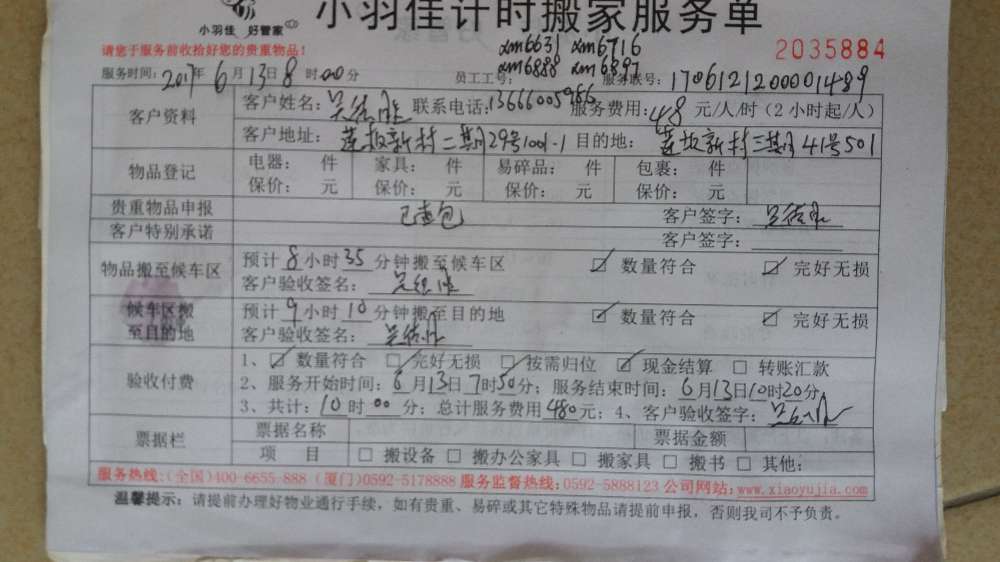 小羽佳计时搬家服务单
小羽佳 好管家
xm6631 xm6716
请您于服务前收拾好您的贵重物品！ 2035884
xm6888 xm6897
服务时间：2017年6月13日8时00分 员工工号： 服务联号：1706121200001489
客户资料 客户姓名： 联系电话：13666005986 服务费用：48元/人/时（2小时起/人）
客户地址：莲坂新村二期29号1001-1 目的地：莲坂新村三期41号501
物品登记 电器： 件 家具： 件 易碎品： 件 包裹： 件
保价： 元 保价： 元 保价： 元 保价： 元
贵重物品申报 已查包 客户签字：
客户特别承诺 客户签字：
物品搬至候车区 预计8小时35分钟搬至候车区 ☑ 数量符合 ☑ 完好无损
客户验收签名：
候车区搬至目的地 预计9小时10分钟搬至目的地 ☑ 数量符合 ☑ 完好无损
客户验收签名：
验收付费 1、☑ 数量符合 ☑ 完好无损 ☑ 按需归位 ☑ 现金结算 □ 转账汇款
2、服务开始时间：6月13日7时50分；服务结束时间：6月13日10时20分
3、共计：10时00分；总计服务费用480元；4、客户验收签字：
票据栏 票据名称 票据金额
项 目 □ 搬设备 □ 搬办公家具 □ 搬家具 □ 搬书 □ 其他：
服务热线：(全国)400-6655-888 (厦门)0592-5178888 服务监督热线：0592-5888123 公司网站：www.xiaoyujia.com
温馨提示：请提前办理好物业通行手续，如有贵重、易碎或其它特殊物品请提前申报，否则我司不予负责。